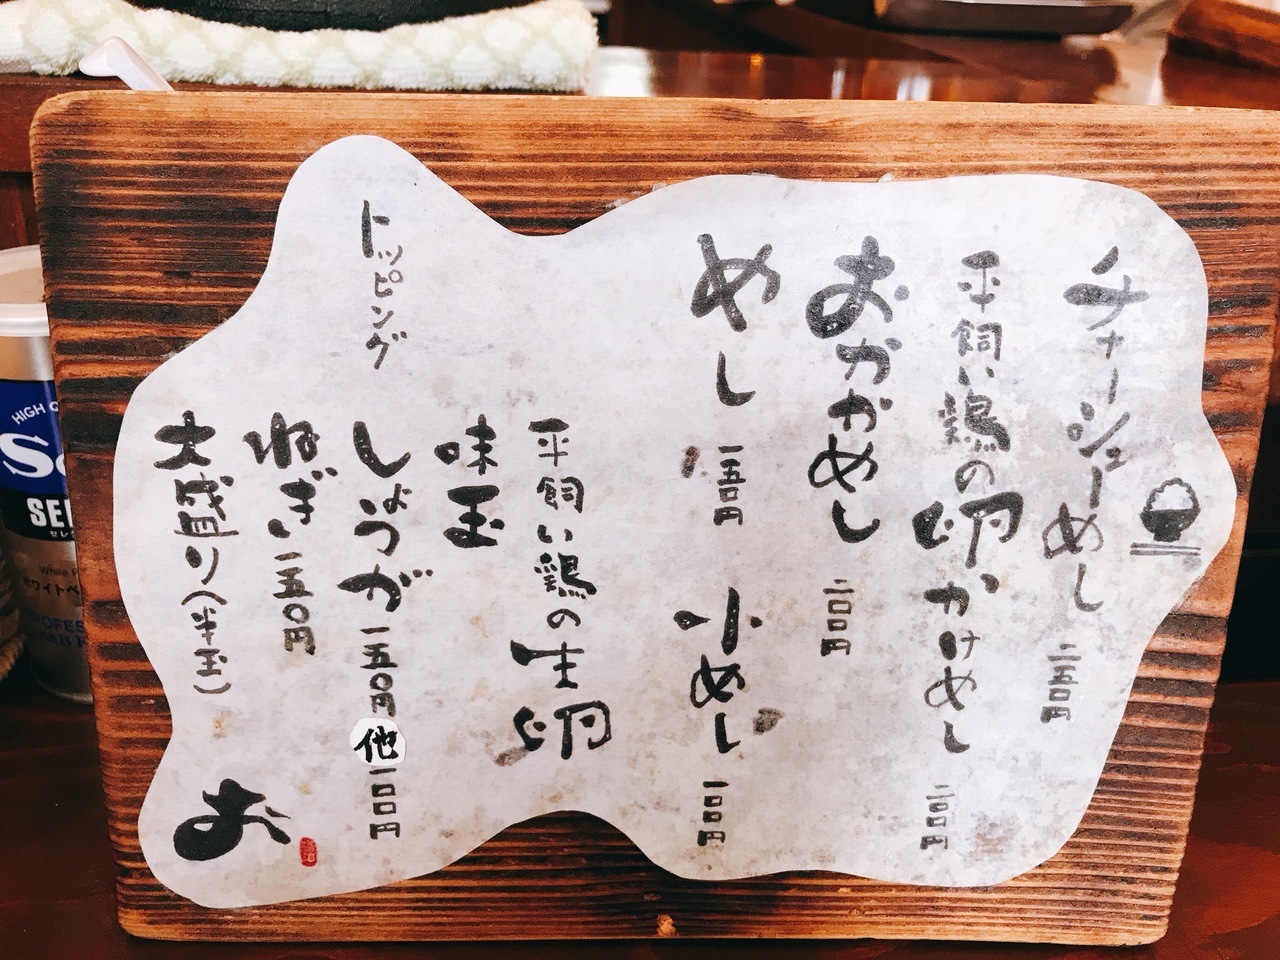 チャーシューめし 二五〇円
平飼い鶏の卵かけめし 二〇〇円
おかかめし 二〇〇円
めし 一五〇円
小めし 一〇〇円
トッピング
平飼い鶏の生卵
味玉
しょうが 一五〇円
他 一〇〇円
ねぎ 一五〇円
大盛り(半玉)
お
HIGH
SE
セレ
White
ホワイトペ